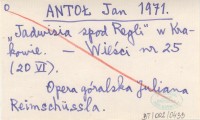 ANTOŁ Jan 1971.
"Jadwisia spod Regli" w Kra-
kowie. — Wieści nr 25
(20 VI).
Opera góralska Juliana
Reimschüssla.